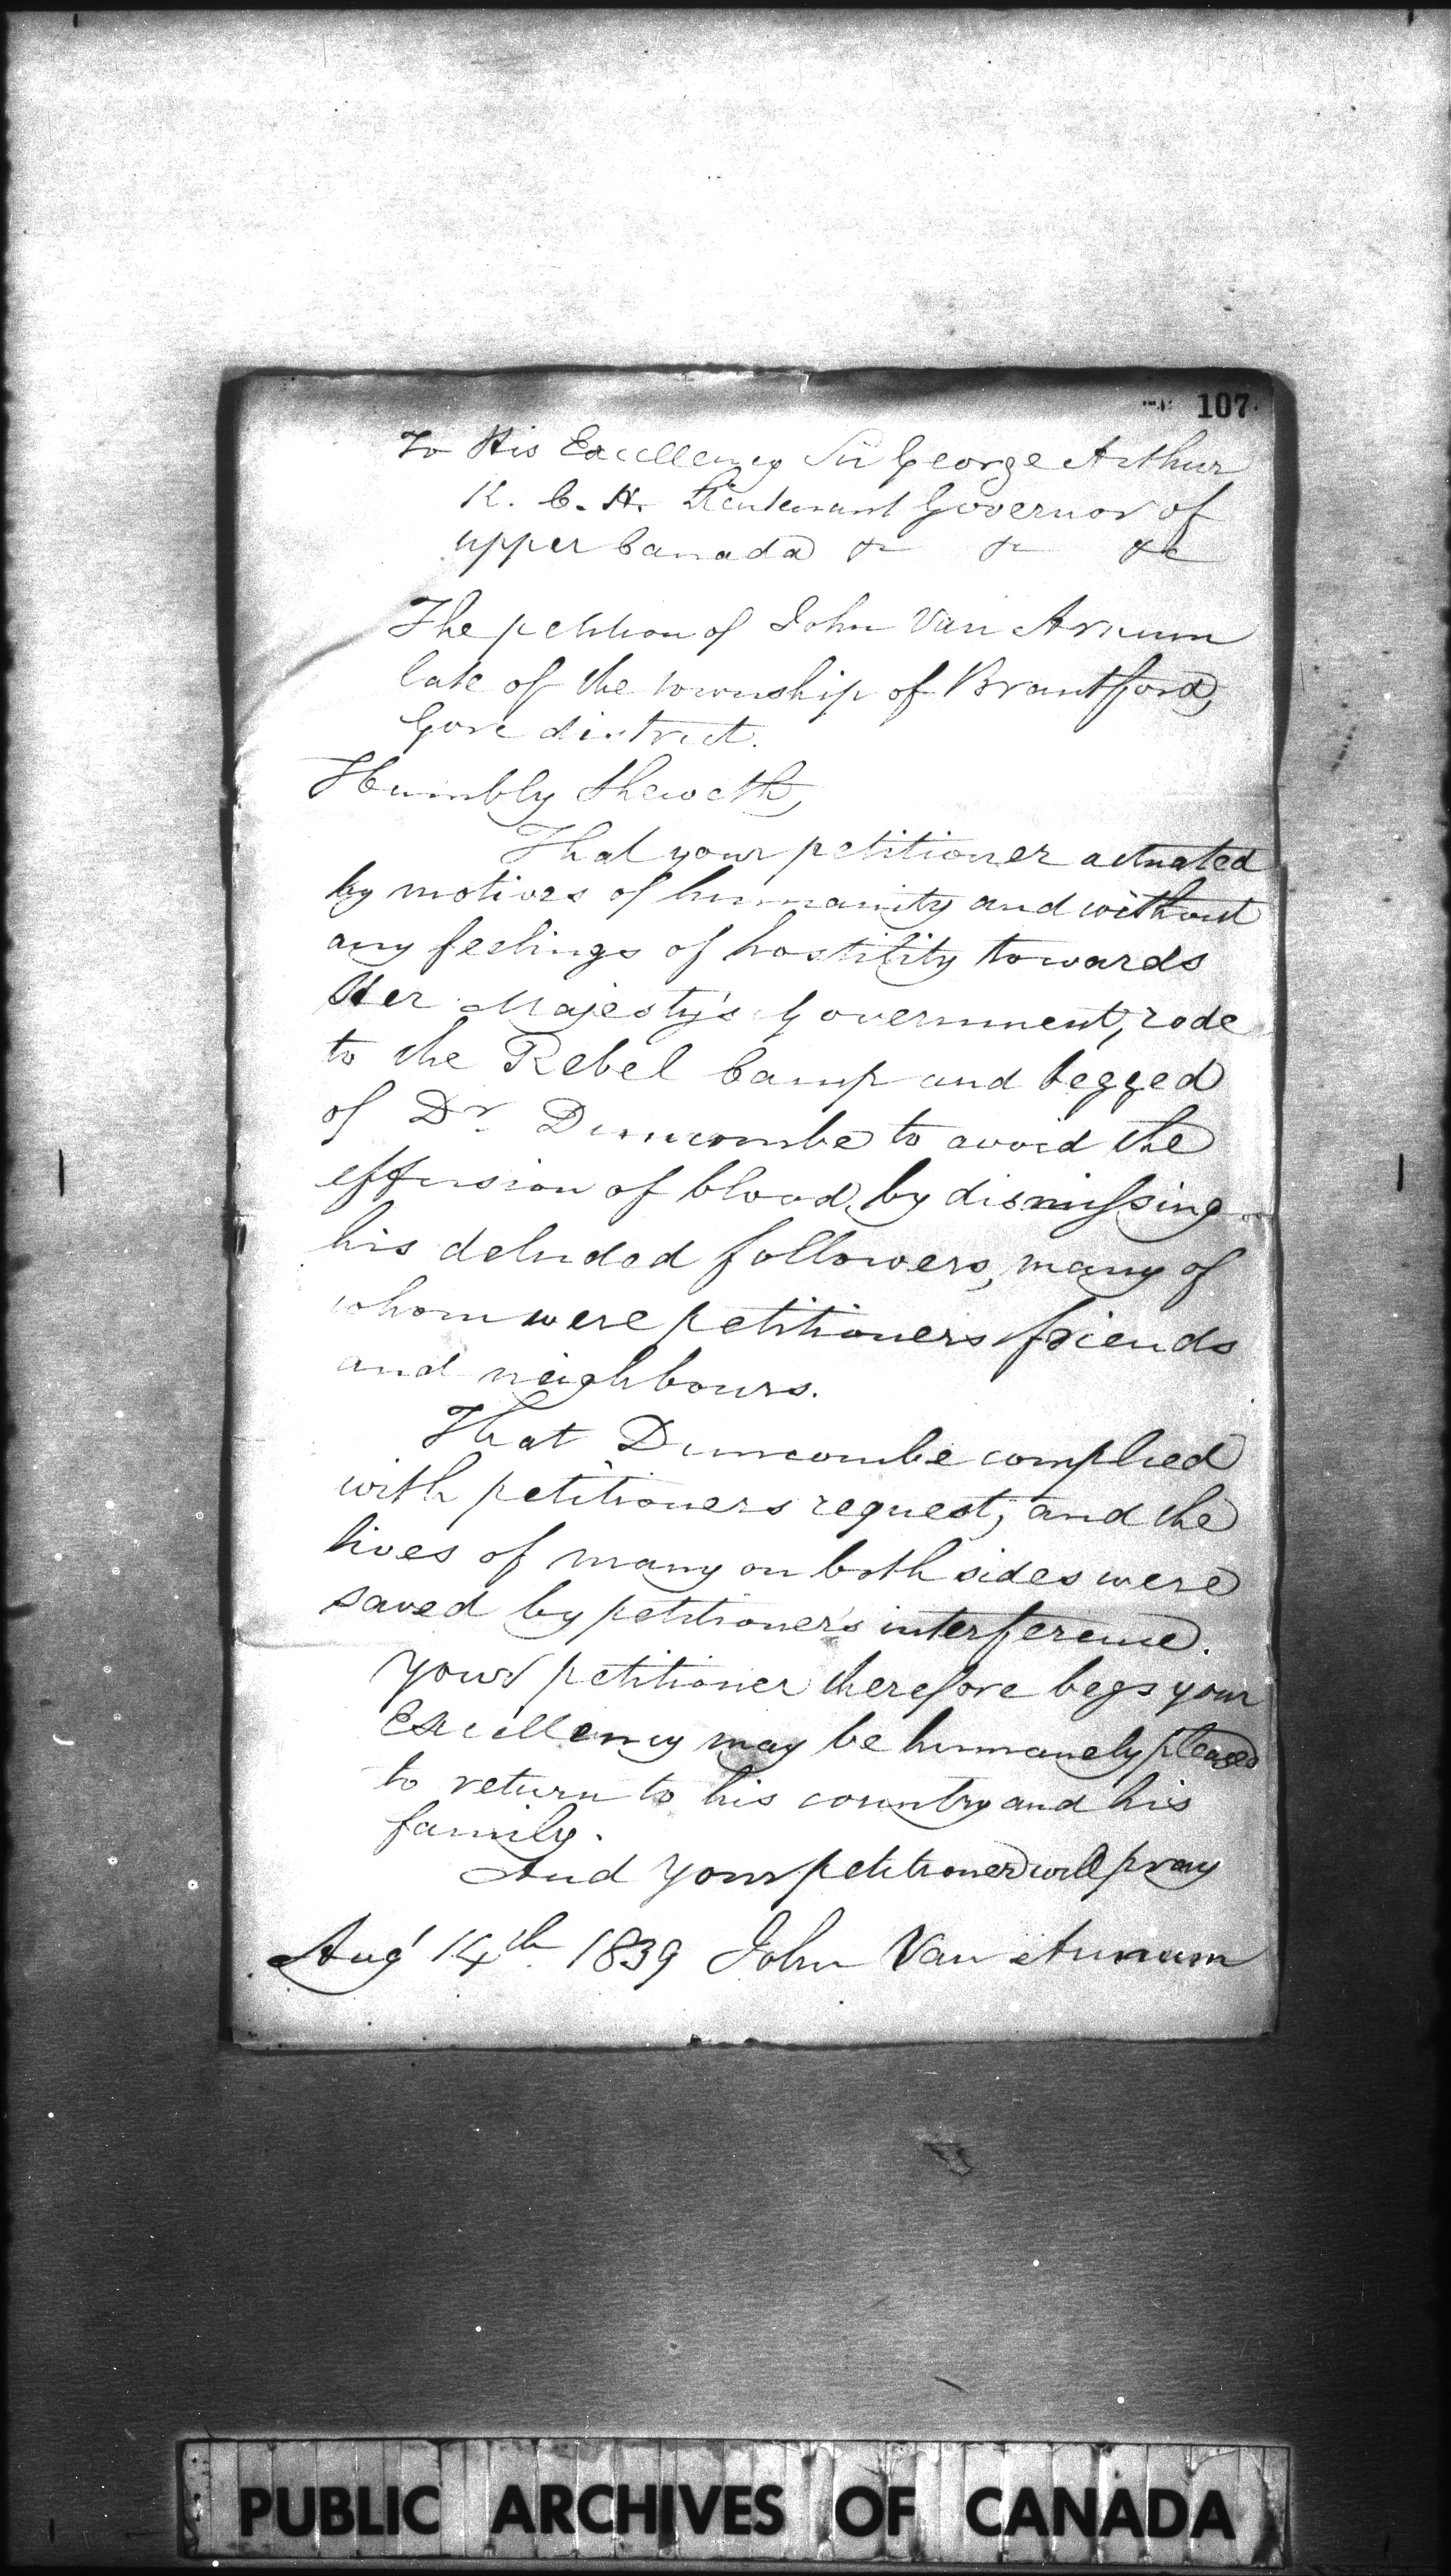 107
To His Excellency Sir George Arthur
K. C. H. Lieutenant Governor of
upper Canada & & &c
The petition of John Van Arnum
late of the township of Brantford,
Gore district.
Humbly Sheweth,
That your petitioner actuated
by motives of humanity and without
any feelings of hostility towards
Her Majesty's Government, rode
to the Rebel Camp and begged
of Dr. Duncombe to avoid the
effusion of blood, by dismissing
his deluded followers, many of
whom were petitioners friends
and neighbours.
That Duncombe complied
with petitioners request, and the
lives of many on both sides were
saved by petitioner's interference.
Your petitioner therefore begs your
Excellency may be humanely pleased
to return to his country and his
family.
And your petitioner will pray
Augt 14th. 1839 John Van Arnum
PUBLIC ARCHIVES OF CANADA